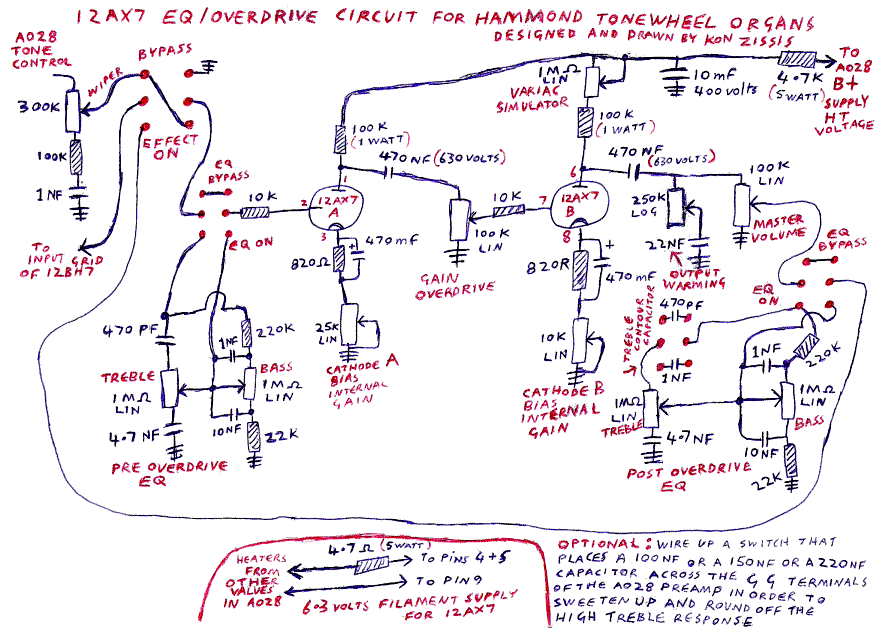 12AX7 EQ/OVERDRIVE CIRCUIT FOR HAMMOND TONEWHEEL ORGANS
DESIGNED AND DRAWN BY KON ZISSIS
AO28
TONE
CONTROL
BYPASS
WIPER
300K
100K
1NF
EFFECT
ON
TO
INPUT GRID
OF 12BH7
EQ
BYPASS
EQ ON
10K
2
1
12AX7
A
3
100K
(1 WATT)
470NF (630 VOLTS)
470mf
820Ω
25K
LIN
CATHODE A
BIAS
INTERNAL
GAIN
100K
LIN
GAIN
OVERDRIVE
10K
7
6
12AX7
B
8
1MΩ
LIN
VARIAC
SIMULATOR
100K
(1 WATT)
10mF
400 VOLTS
4.7K
(5 WATT)
TO
AO28
B+
SUPPLY
HT
VOLTAGE
470NF
(630 VOLTS)
250K
LOG
22NF
OUTPUT
WARMING
100K
LIN
MASTER
VOLUME
EQ
BYPASS
EQ
ON
820R
470mF
10K
LIN
CATHODE B
BIAS
INTERNAL
GAIN
TREBLE
CONTOUR
CAPACITOR
470PF
1NF
1MΩ
LIN
TREBLE
4.7NF
1NF
220K
1MΩ
LIN
BASS
10NF
22K
POST OVERDRIVE
EQ
470PF
220K
1NF
TREBLE
1MΩ
LIN
BASS
1MΩ
LIN
4.7NF
10NF
22K
PRE OVERDRIVE
EQ
HEATERS
FROM
OTHER
VALVES
IN AO28
4.7Ω (5 WATT)
TO PINS 4+5
TO PIN 9
6.3 VOLTS FILAMENT SUPPLY
FOR 12AX7
OPTIONAL: WIRE UP A SWITCH THAT
PLACES A 100NF OR A 150NF OR A 220NF
CAPACITOR ACROSS THE G G TERMINALS
OF THE AO28 PREAMP IN ORDER TO
SWEETEN UP AND ROUND OFF THE
HIGH TREBLE RESPONSE